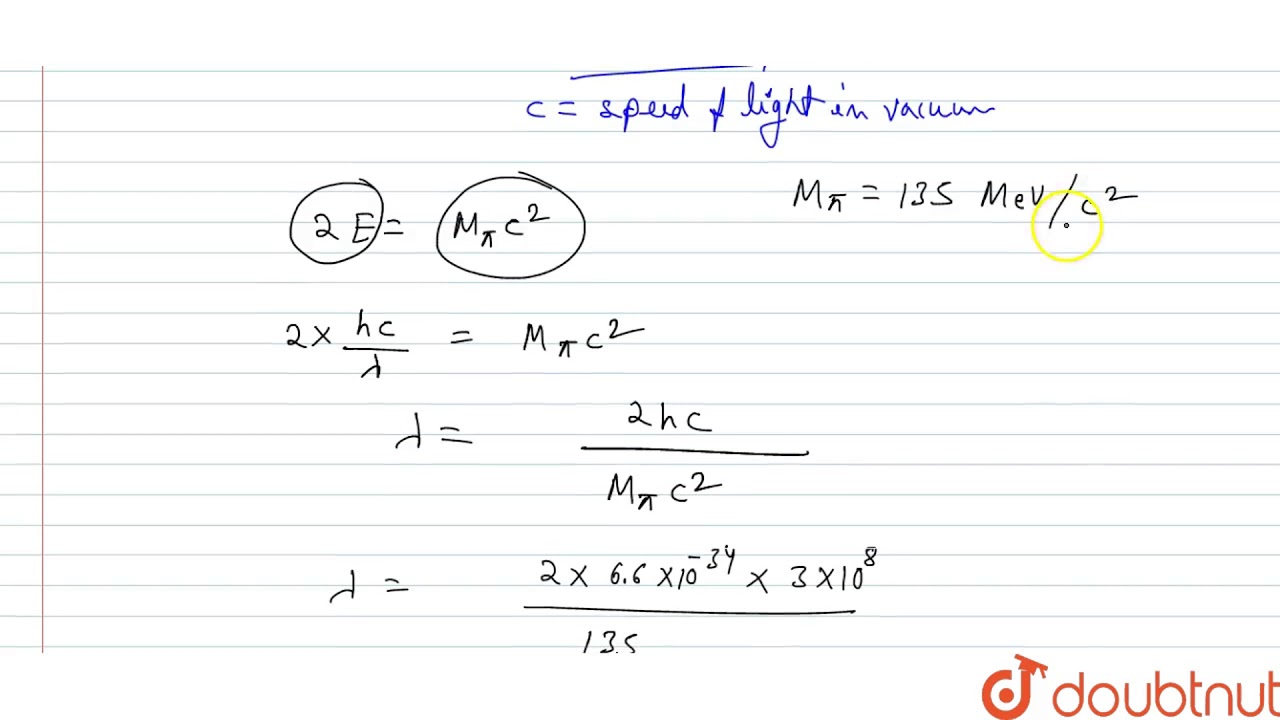 c = speed of light in vacuum
2E = Mπc² Mπ = 135 MeV/c²
2 × hc/λ = Mπc²
λ = 2hc / Mπc²
λ = 2 × 6.6 × 10⁻³⁴ × 3 × 10⁸ / 135
doubtnut